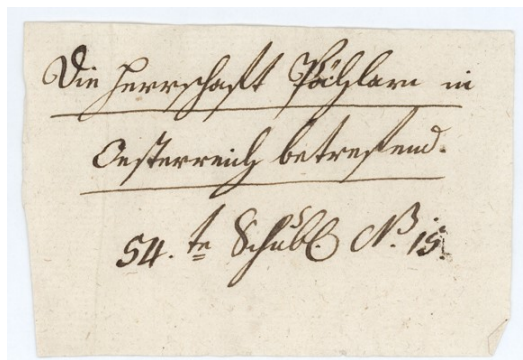 Die Herrschaft Pöchlarn in
Oesterreich betreffend.
54.te Schubl. N. 15.